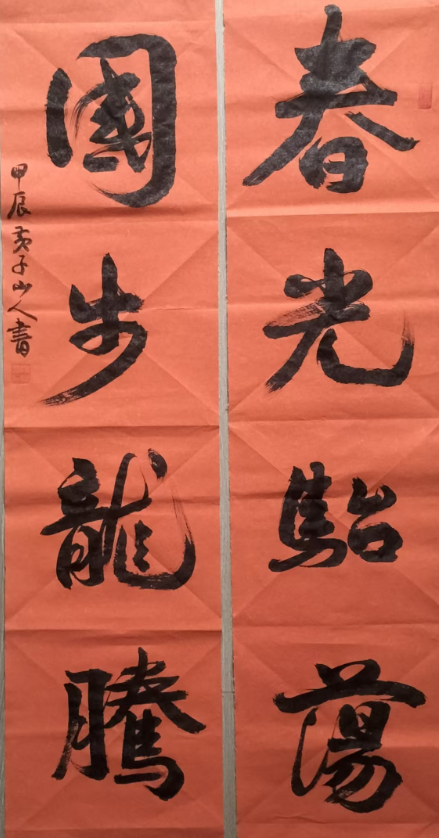 春光駘蕩
國步龍騰
甲辰黃子山人書